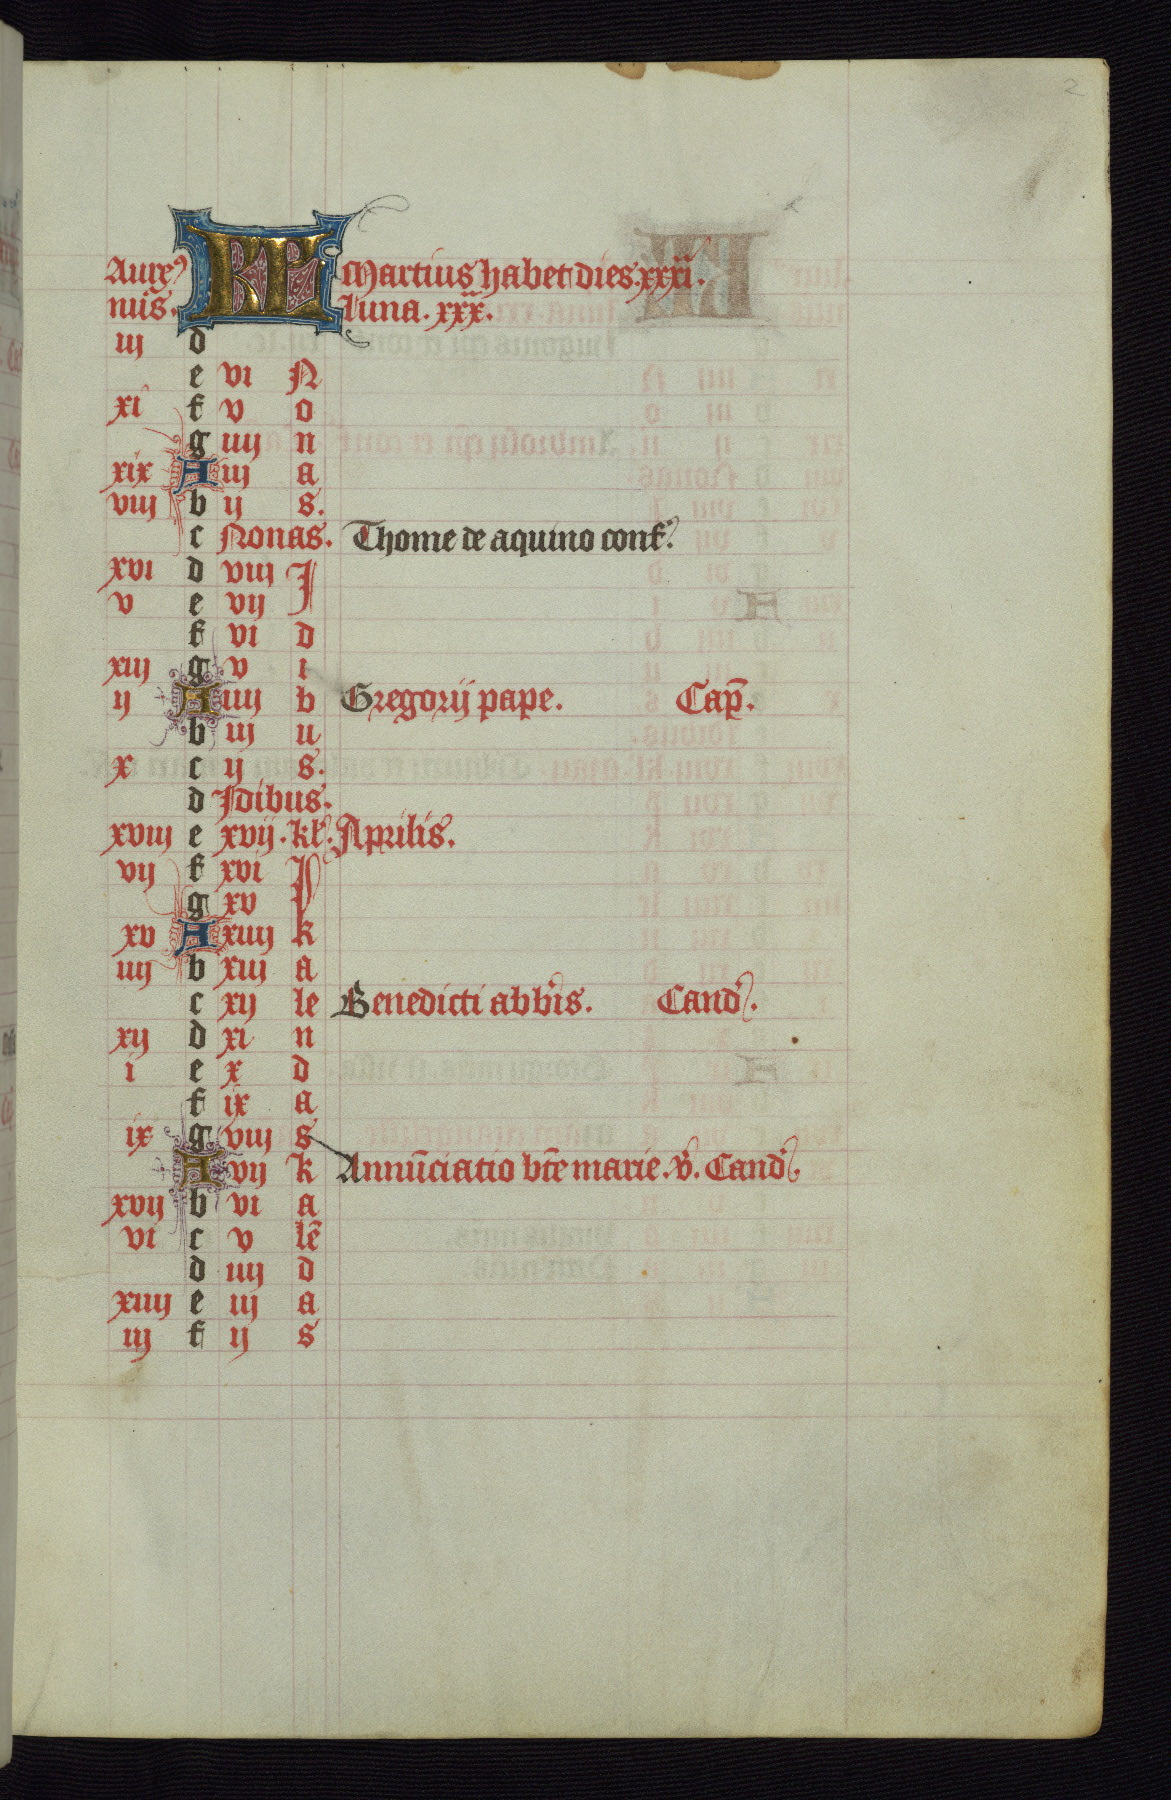 2
Aure9 KL Martius habet dies. xxxi.
nus. luna. xxx.
iij d
e vi N
xi f v o
g iiij n
xix A iij a
viij b ij s.
c Nonas. Thome de aquino conf.
xvi d viij I
v e vij
f vi d
xiij g v i
ij A iiij b Gregorij pape. Cap̄.
b iij u
x c ij s.
d Idibus.
xviij e xvij. kl. Aprilis.
vij f xvi P
g xv
xv A xiiij k
iiij b xiij a
c xij le Benedicti abb̄is. Cand.
xij d xi n
i e x d
f ix a
ix g viij s
A vij k Annūciatio bt̄e marie. v. Cand.
xvij b vi a
vi c v lē
d iiij d
xiiij e iij a
iij f ij s